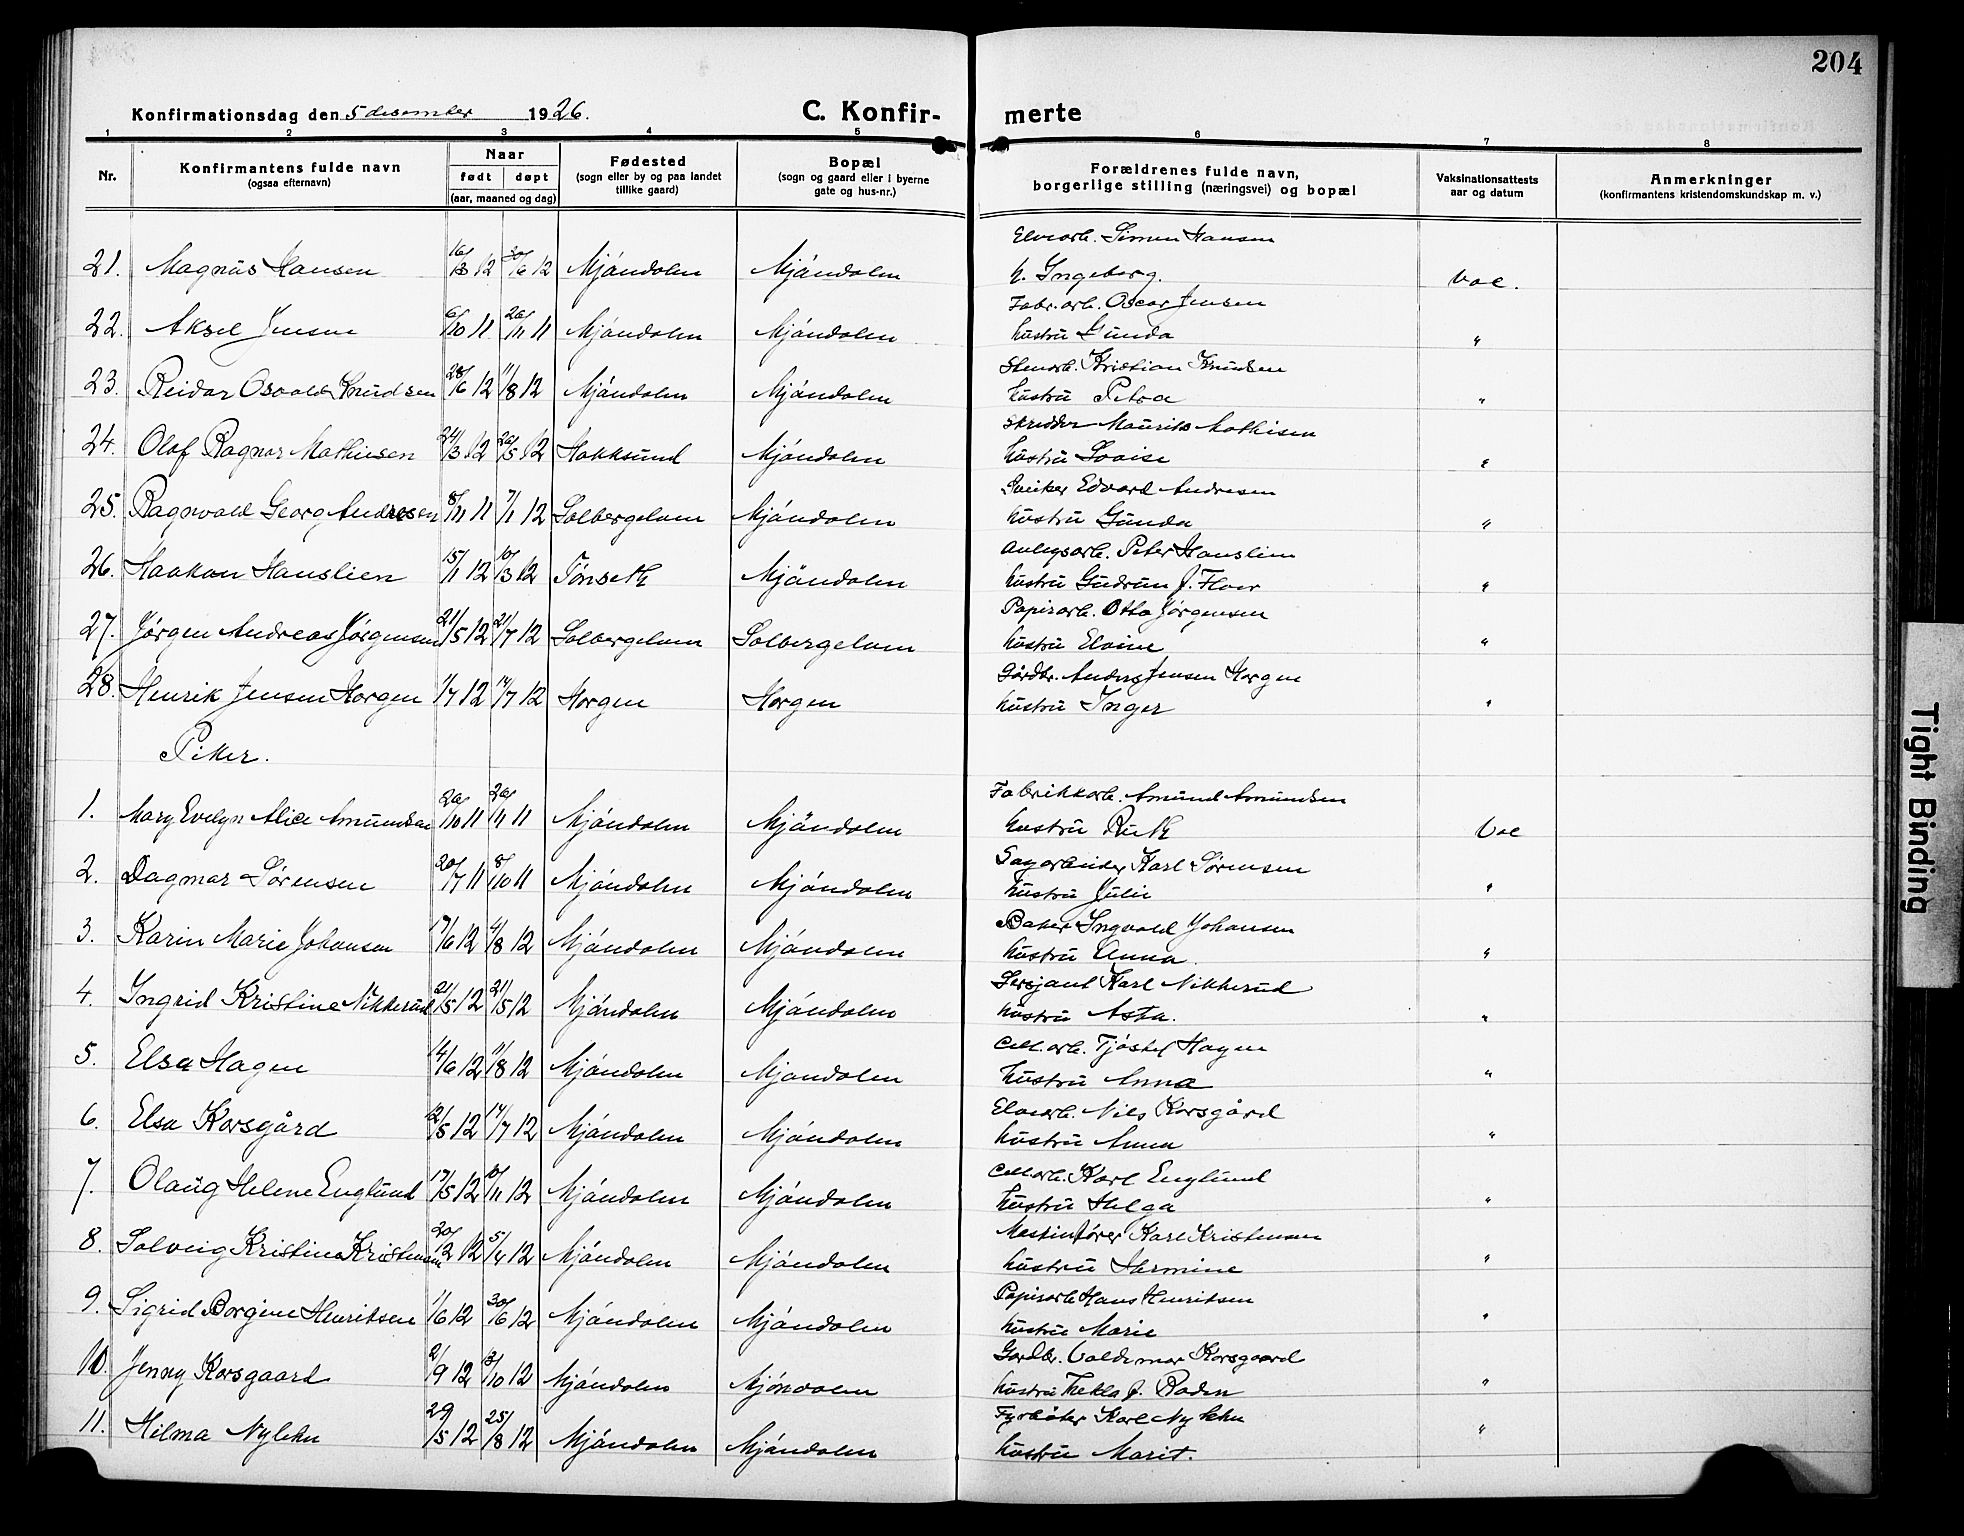 204
Konfirmationsdag den 5 desember 1926. C. Konfirmerte
1 2 3 4 5 6 7 8
Nr. Konfirmantens fulde navn (ogsaa efternavn) Naar født døpt (aar, maaned og dag) Fødested (sogn eller by og paa landet tillike gaard) Bopæl (sogn og gaard eller i byerne gate og hus-nr.) Forældrenes fulde navn, borgerlige stilling (næringsvei) og bopæl Vaksinationsattests aar og datum Anmerkninger (konfirmantens kristendomskundskap m. v.)
Elvearb. Simen Hansen
21. Magnus Hansen 16/3 12 30/6 12 Mjöndalen Mjöndalen h. Ingeborg. Vac.
Fabr.arb. Oscar Jensen
22. Aksel Jensen 6/10 11 26/11 11 Mjöndalen Mjöndalen hustru Gunda "
Stenarb. Kristian Knudsen
23. Reidar Osvald Knudsen 28/6 12 11/8 12 Mjöndalen Mjöndalen hustru Petra "
Skredder Maurits Mathisen
24. Olaf Ragnar Mathiesen 24/3 12 26/5 12 Hokksund Mjöndalen hustru Lovise "
Edvard Andresen
25. Ragnvald Georg Andresen 8/11 11 7/1 12 Solbergelven Mjöndalen hustru Gunda "
Anlegsarb. Peter Hanslien
26. Haakon Hanslien 15/1 12 10/3 12 Tönseth Mjöndalen hustru Gudrun f. Floer "
Papirarb. Otto Jørgensen
27. Jørgen Andreas Jørgensen 21/5 12 21/7 12 Solbergelven Solbergelven hustru Elvine "
Gårdbr. Anders Jensen Horgen
28. Henrik Jensen Horgen 1/7 12 14/7 12 Horgen Horgen hustru Inger "
Piker.
Fabrikkarb. Amund Amundsen
1. Mary Evelyn Alice Amundsen 26/10 11 26/11 11 Mjöndalen Mjöndalen hustru Ruth Vac
Sagarbeider Karl Sørensen
2. Dagmar Sørensen 20/7 11 8/10 11 Mjöndalen Mjöndalen hustru Julie "
Baker Ingvald Johansen
3. Karin Marie Johansen 17/6 12 4/8 12 Mjöndalen Mjöndalen hustru Anna. "
Sersjant Karl Nikkerud
4. Ingrid Kristine Nikkerud 2/5 12 21/5 12 Mjöndalen Mjöndalen hustru Asta. "
Cell.arb. Tjöstel Hagen
5. Elsa Hagen 14/6 12 11/8 12 Mjöndalen Mjöndalen hustru Anna "
Elvearb. Nils Korsgård
6. Elsa Korsgård 12/5 12 14/7 12 Mjöndalen Mjöndalen hustru Anna "
Cell.arb. Karl Englund
7. Olaug Helene Englund 17/5 12 10/11 12 Mjöndalen Mjöndalen hustru Helga "
Maskinfører Karl Kristensen
8. Solveig Kristine Kristensen 20/2 12 5/4 12 Mjöndalen Mjöndalen hustru Hermine "
Papirarb Hans Henriksen
9. Sigrid Borgine Henriksen 1/6 12 30/6 12 Mjöndalen Mjöndalen hustru Marie "
Gardbr. Valdemar Korsgaard
10. Jenny Korsgaard 2/9 12 3/10 12 Mjöndalen Mjöndalen hustru Thekla f. Roden "
Fyrbøter Karl Nylehn
11. Hilma Nylehn 29/5 12 25/8 12 Mjöndalen Mjöndalen hustru Marit. "
Tight Binding